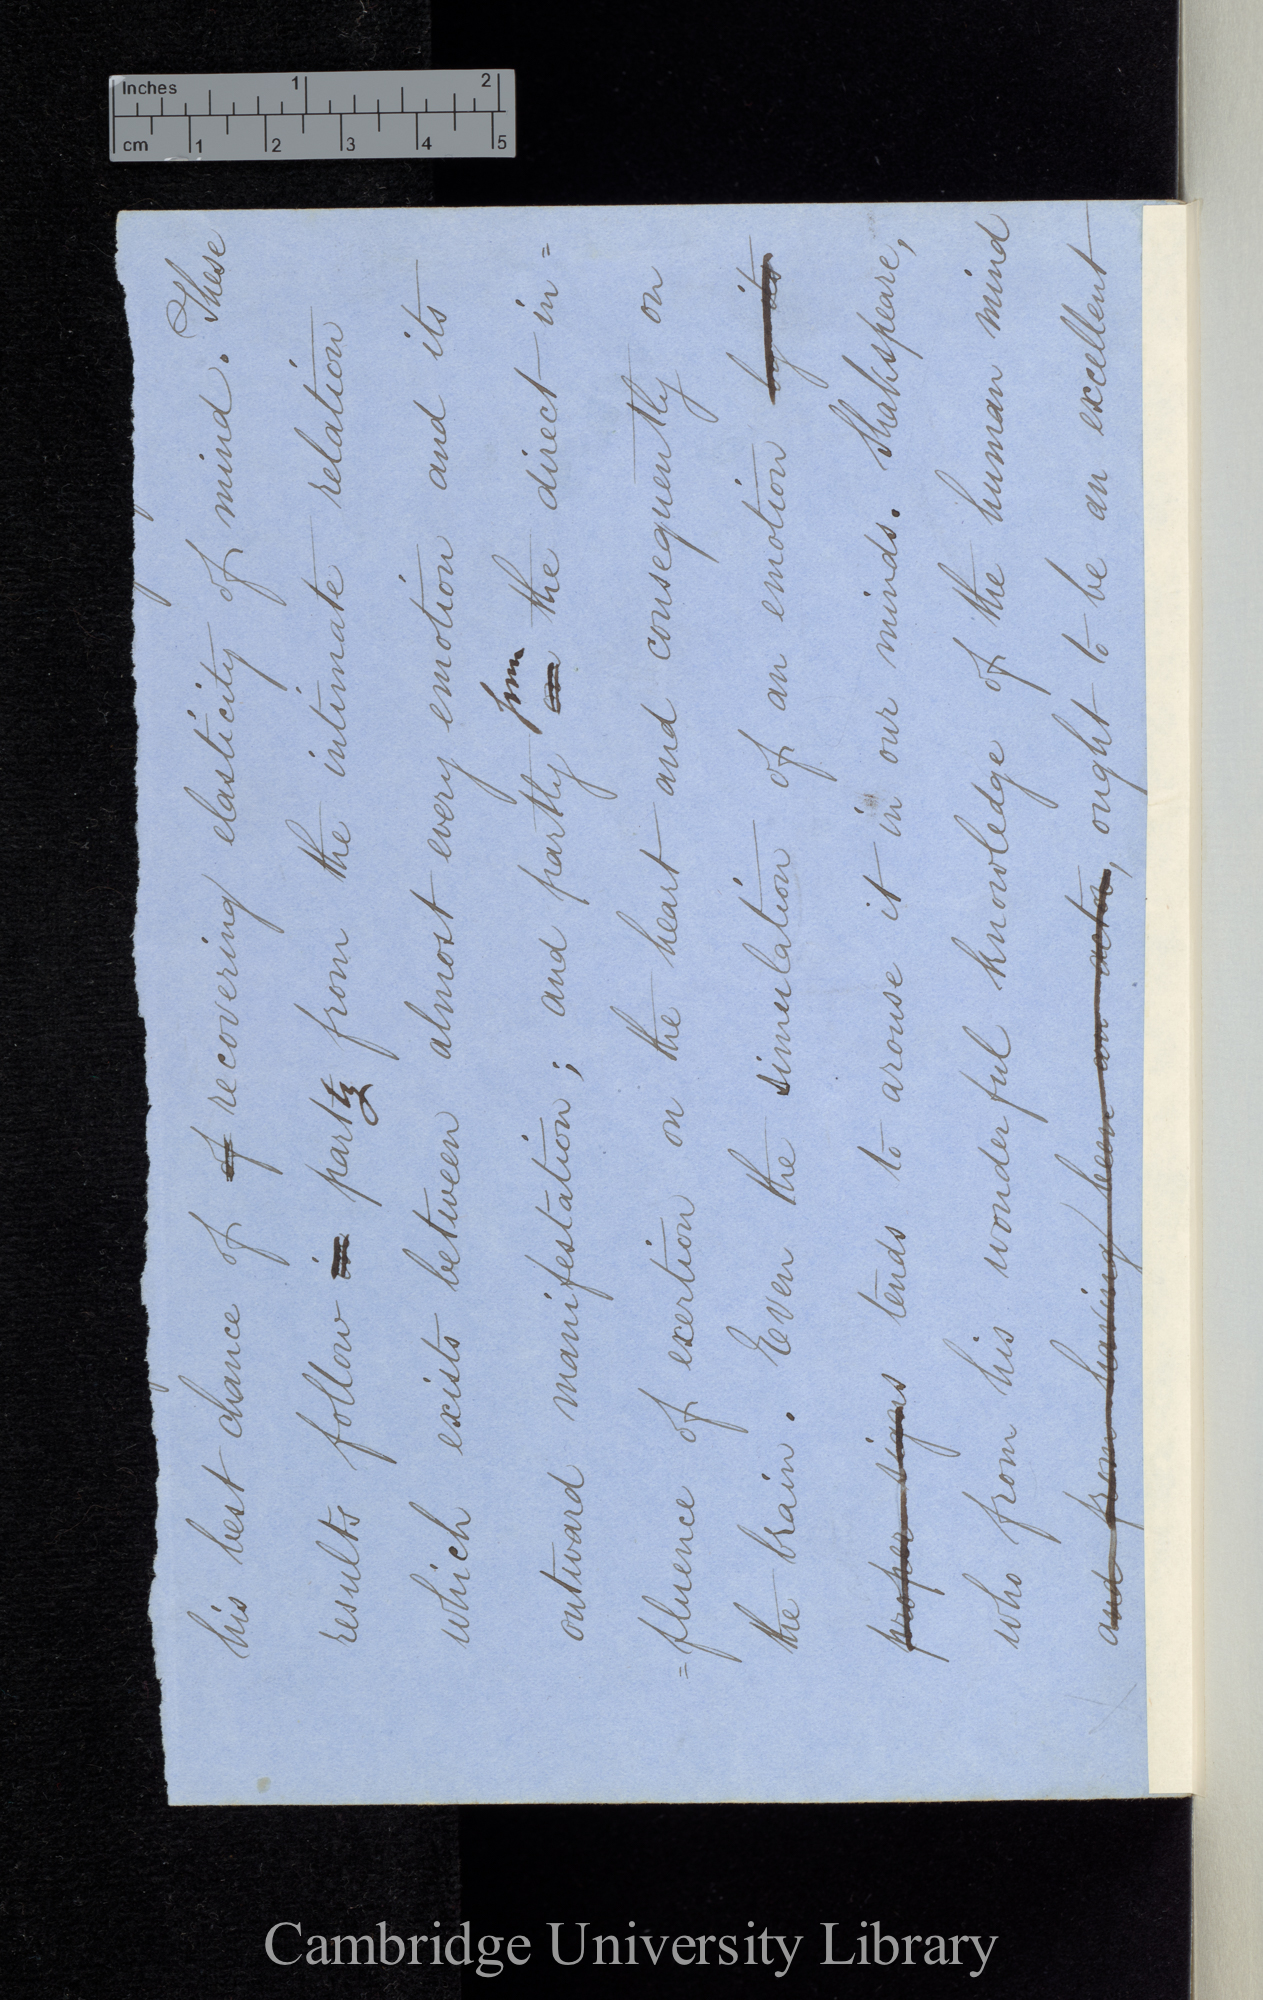 Inches 1 2
cm 1 2 3 4 5
his best chance of of recovering elasticity of mind. These
results follow in partly from the intimate relation
which exists between almost every emotion and its
from
outward manifestation; and partly on the direct in=
=fluence of exertion on the heart and consequently on
the brain. Even the simulation of an emotion by its
proper signs tends to arouse it in our minds. Shakspeare,
who from his wonderful knowledge of the human mind
and from having been an actor, ought to be an excellent
Cambridge University Library